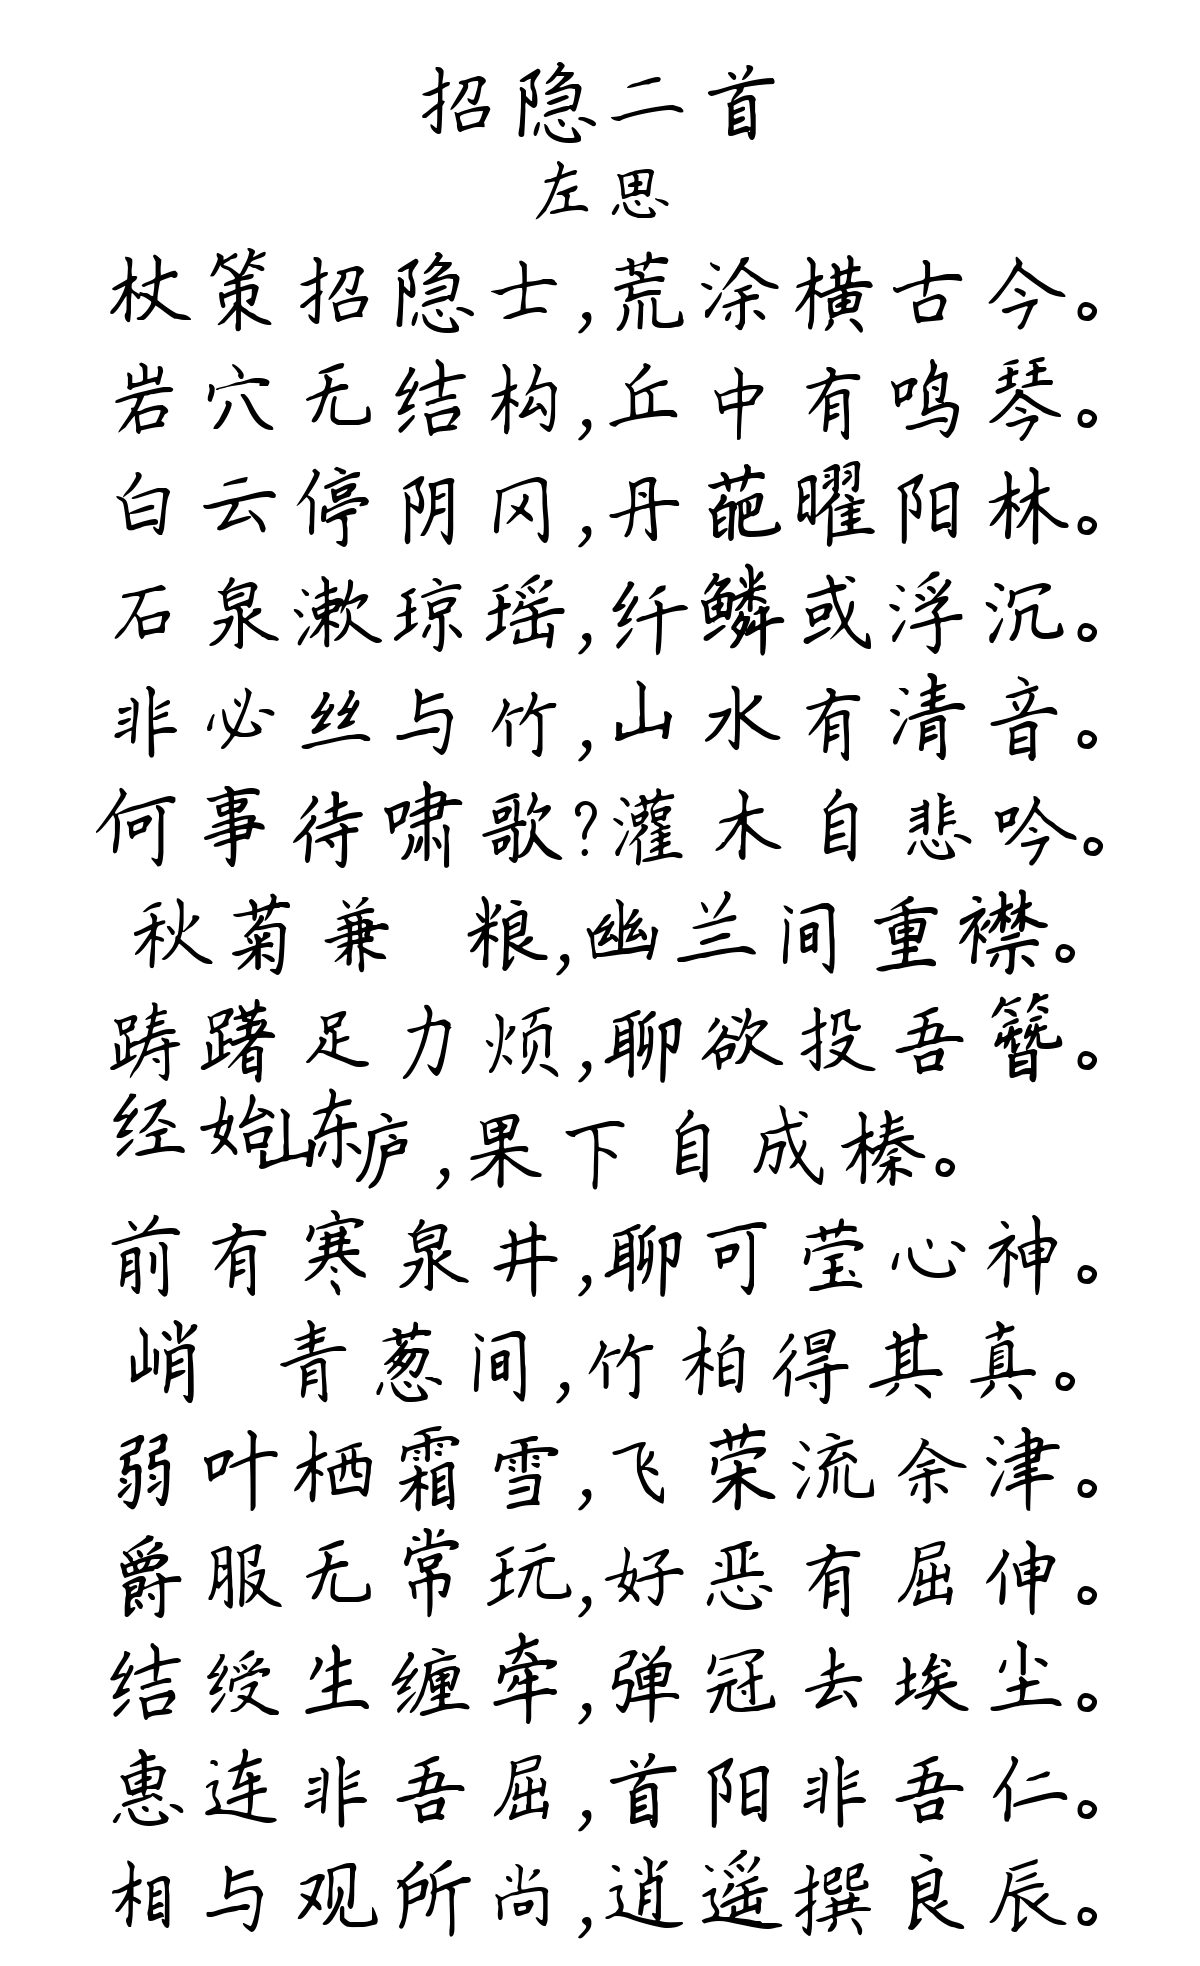 招隐二首
左思
杖策招隐士,荒涂横古今。
岩穴无结构,丘中有鸣琴。
白云停阴冈,丹葩曜阳林。
石泉漱琼瑶,纤鳞或浮沉。
非必丝与竹,山水有清音。
何事待啸歌?灌木自悲吟。
秋菊兼 粮,幽兰间重襟。
踌躇足力烦,聊欲投吾簪。
经始东山庐,果下自成榛。
前有寒泉井,聊可莹心神。
峭 青葱间,竹柏得其真。
弱叶栖霜雪,飞荣流余津。
爵服无常玩,好恶有屈伸。
结绶生缠牵,弹冠去埃尘。
惠连非吾屈,首阳非吾仁。
相与观所尚,逍遥撰良辰。